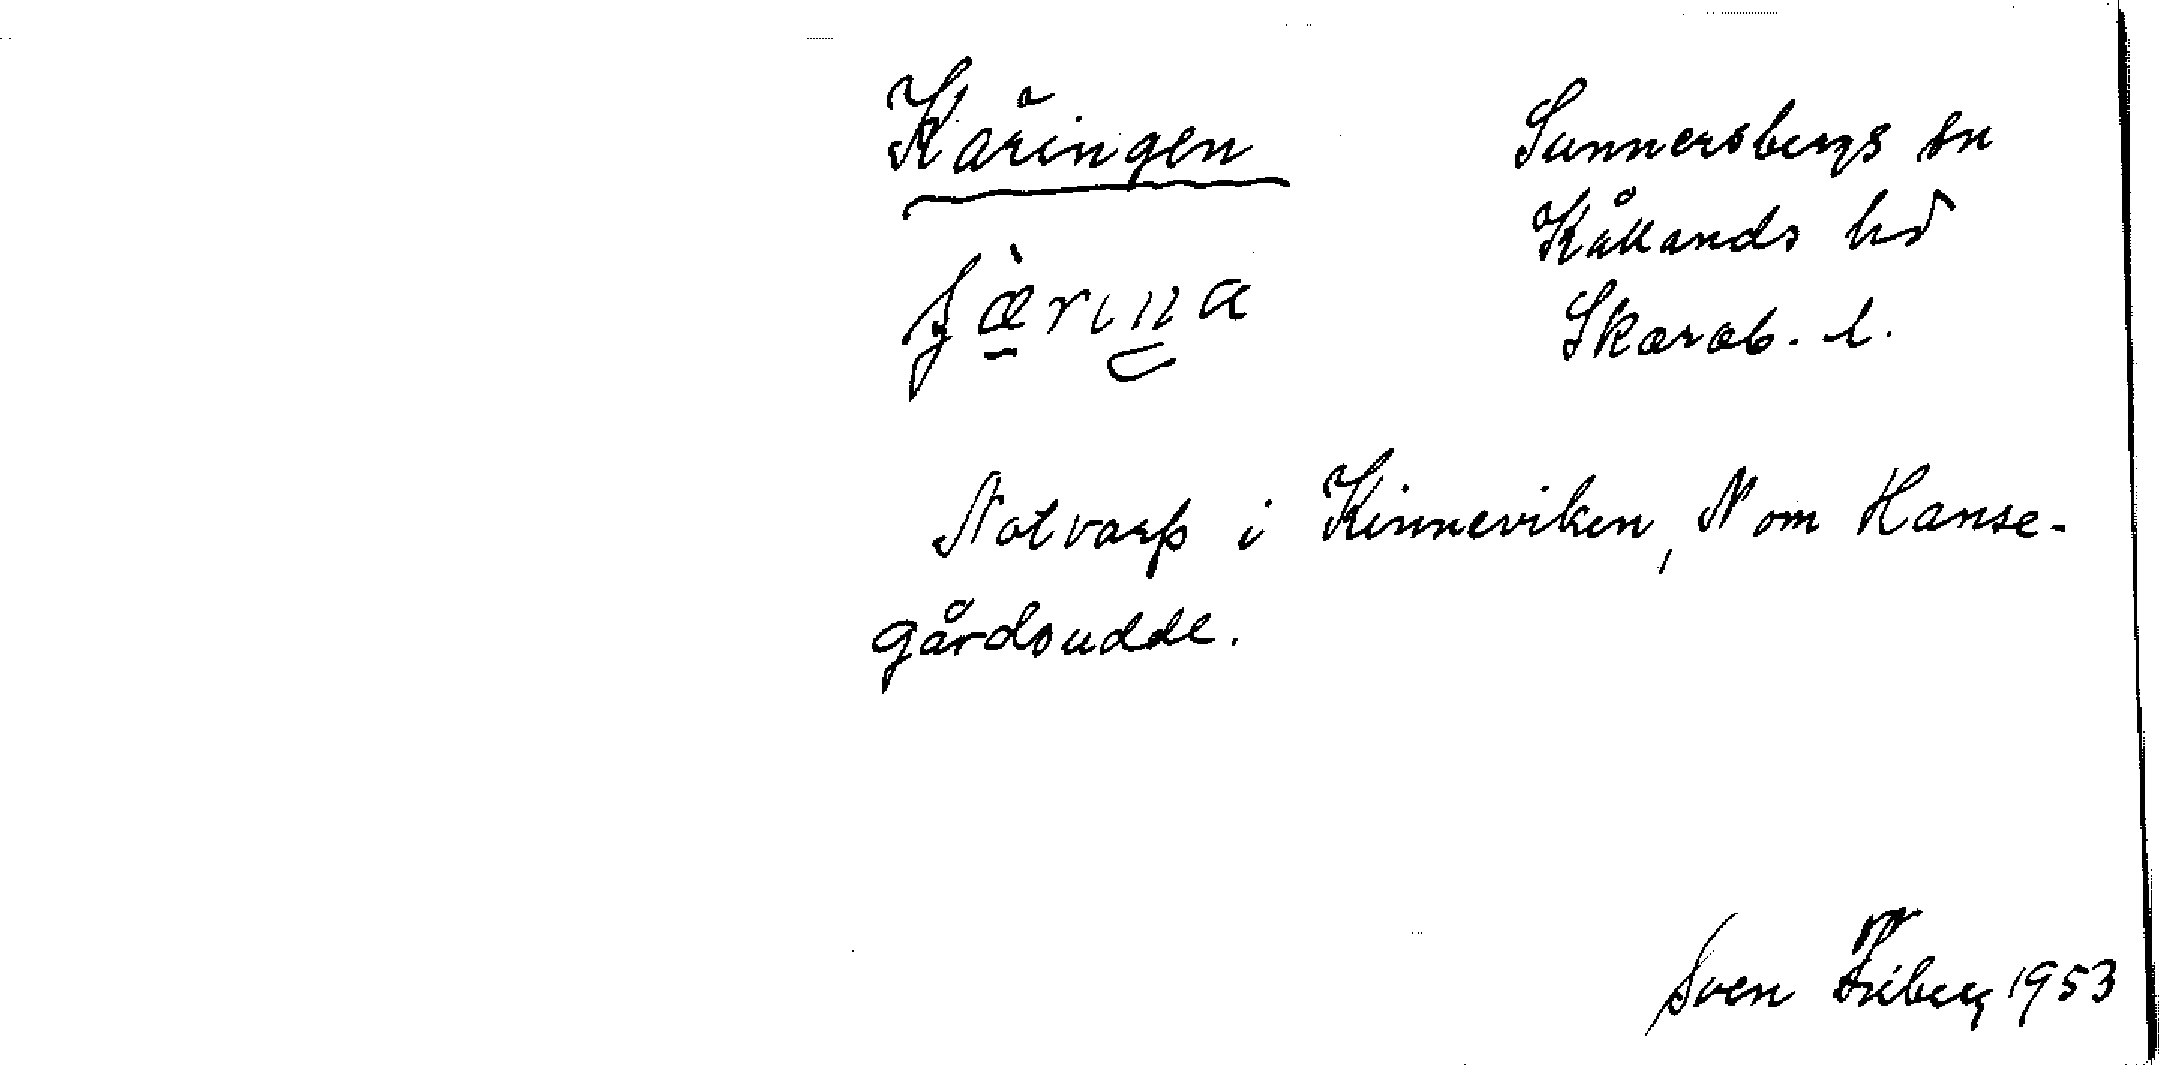 Käringen
Sunnersbergs sn
Kållands hd
Skarab. l.
Notvarp i Kinneviken, N om Hanse-
gårdsudde.
Sven Friberg 1953